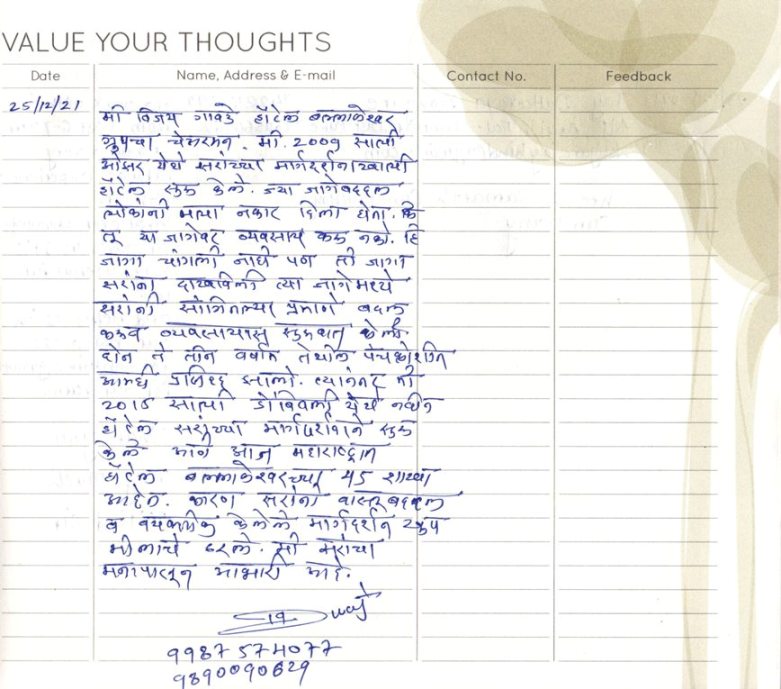 VALUE YOUR THOUGHTS
Date Name, Address & E-mail Contact No. Feedback
25/12/21 मी विजय गावडे हॉटेल बल्लाळेश्वर
ग्रुपचा चेअरमन. मी 2009 साली
येथे सरांच्या मार्गदर्शनाखाली
हॉटेल सुरू केले. ज्या जागेबद्दल
लोकांनी मला नकार दिला होता. कि
तू या जागेवर व्यवसाय करू नको. हि
जागा चांगली नाही पण ती जागा
सरांना दाखविली त्या जागेमध्ये
सरांनी सांगितल्या प्रमाणे बदल
करून व्यवसायास सुरूवात केली.
दोन ते तीन वर्षात तेथील पंचक्रोशीत
आम्ही प्रसिध्द झालो. त्यानंतर मी
2015 साली डोंबिवली येथे नवीन
हॉटेल सरांच्या मार्गदर्शनाने सुरू
केले आज महाराष्ट्रात
हॉटेल बल्लाळेश्वरच्या 45 शाखा
आहेत. कारण सरांनी वास्तूबद्दल
व केलेले मार्गदर्शन खूप
मोलाचे ठरले. मी सरांचा
मनापासून आभारी आहे.
9987574077
9890090829